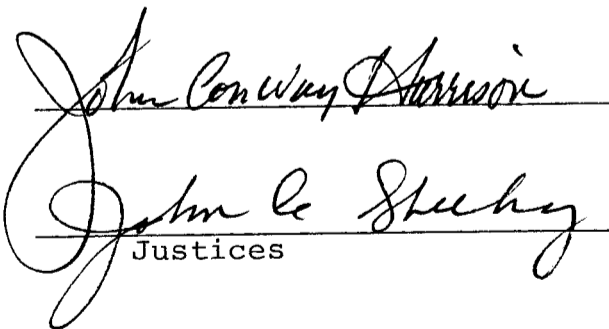 John Conway Harrison
John C. Sheehy
Justices